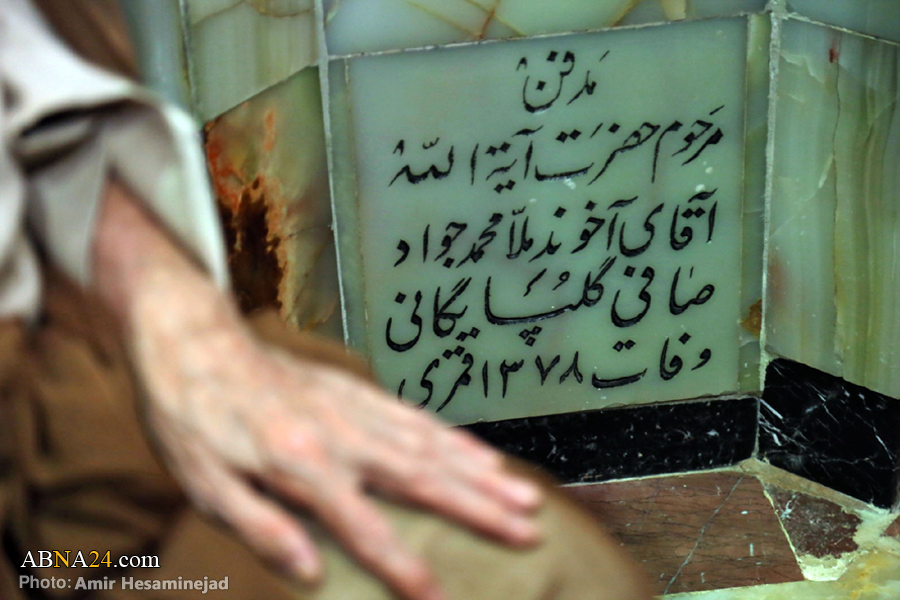 مدفن
مرحوم حضرت آیة الله
آقای آخوند ملا محمد جواد
صافی گلپایگانی
وفات ۱۳۷۸ قمری
ABNA24.com
Photo: Amir Hesaminejad